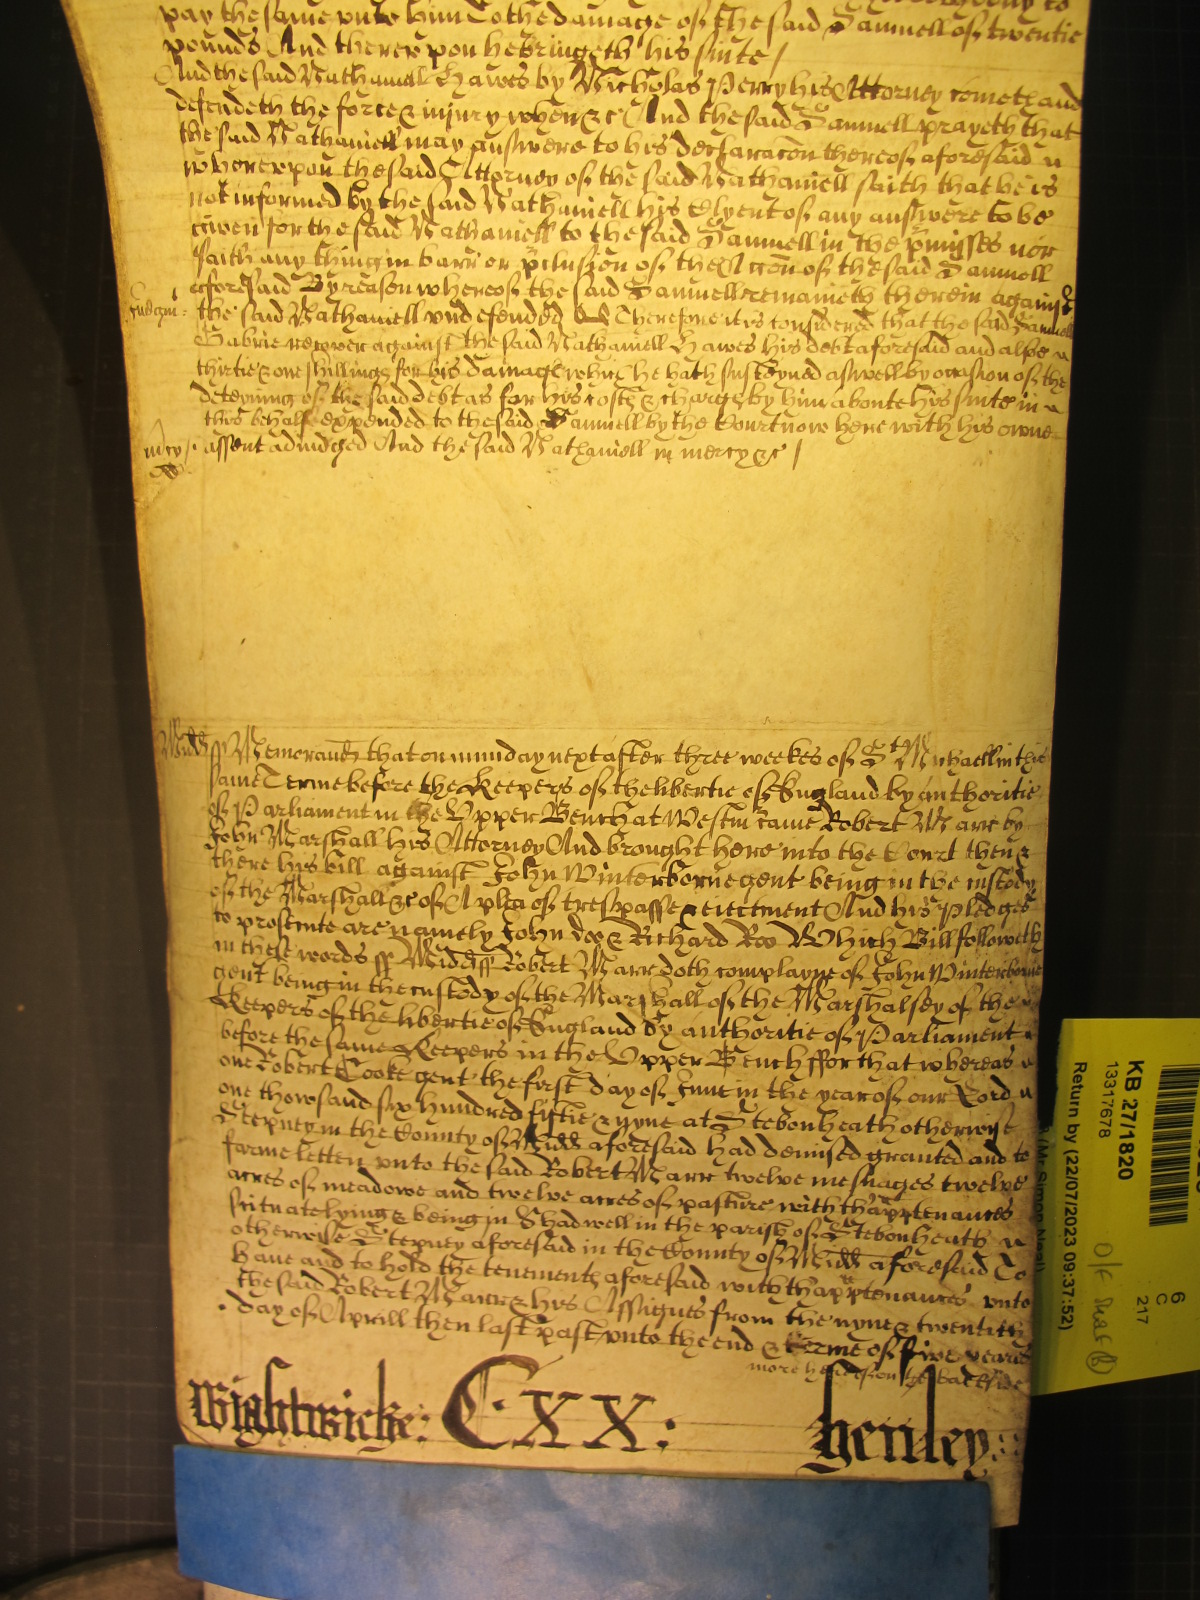 pay the same unto him To the damage of the said Samuell of twentie
pounds And thereupon he bringeth his suite /
And the said Nathaniell Hawes by Nicholas Perry his Attorney cometh and
defendeth the force & injury when &c And the said Samuell prayeth that
the said Nathaniell may answere to his declaracon thereof aforesaid
whereupon the said Attorney of the said Nathaniell saith that he is
not informed by the said Nathaniell his Clyent of any answere to be
given for the said Nathaniell to the said Samuell in the p'misses nor
saith any thing in barr or p'clusion of the Accon of the said Samuell
aforesaid By reason whereof the said Samuell remaineth therein against
Judgm: the said Nathaniell undefended Therefore it is considered that the said Samuell
Gabrie recover against the said Nathaniell Hawes his debt aforesaid and alsoe
thirtie & one shillings for his damage which he hath susteyned aswell by occasion of the
deteyning of the said debt as for his costs & charges by him aboute his suite in
this behalfe expended to the said Samuell by the Court now here with his owne
mcy /. assent adiudged And the said Nathaniell in mercy &c /
Midds ss Memorand that on munday next after three weekes of St Michaell in this
same Terme before the Keepers of the libertie of England by authoritie
of Parliament in the Upper Bench at Westm came Robert Marr by
John Marshall his Attorney And brought here into the Court then &
there his bill against John Winterborne gent being in the custody
of the Marshall &c of A plea of trespasse & eiectment And his Pledges
to prosecute are namely John doo & Richard Roo Which Bill followeth
in these words ss Midds ss Robert Marr doth complayne of John Winterborne
gent being in the custody of the Marshall of the Marshalsey of the
Keepers of the libertie of England by authoritie of Parliament
before the same Keepers in the Upper Bench ffor that whereas
one Robert Cooke gent the first day of June in the year of our Lord
one thowsand six hundred fiftie & nyne at Stebonheath otherwise
Stepney in the County of Midd aforesaid had demised granted and to
farme letten unto the said Robert Marr twelve messuages twelve
acres of meadowe and twelve acres of pasture with thapptenances
scituate lying & being in Shadwell in the parish of Stebonheath
otherwise Stepney aforesaid in the County of Midd aforesaid To
have and to hold the tenements aforesaid with thapptenances unto
the said Robert Marr & his Assignes from the nyne & twentieth
day of Aprill then last past unto the end & terme of five yeares
more hereof on the backside
Wightwicke: CXX: henley
KB 27/1820
13317678
Return by (22/07/2023 09:37:52)
(Mr Simon Neal)
6
C
217